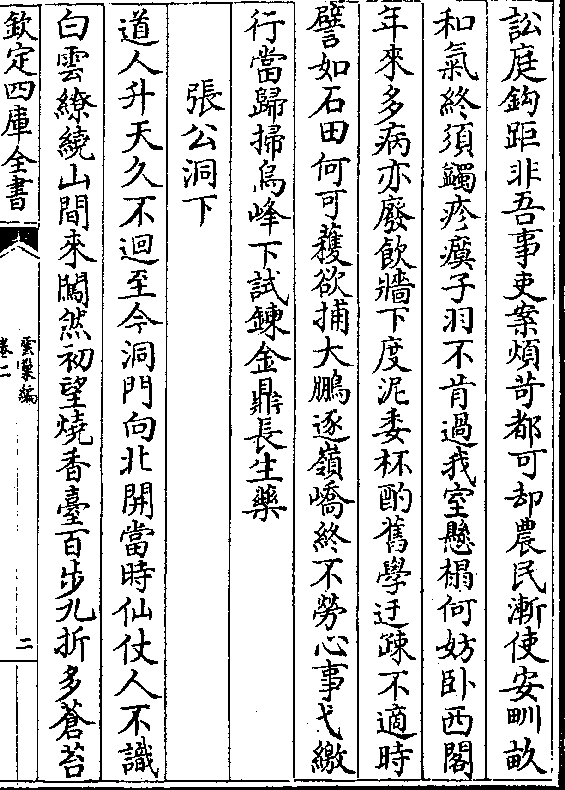 訟庭鈎距非吾事吏案煩苛都可却農民漸使安甽畝
和氣終須蠲疹瘼子羽不肯過我室懸榻何妨卧西閣
年來多病亦廢飲牆下度泥委杯酌舊學迂疎不適時
譬如石田何可穫欲捕大鵬逐嶺嶠終不勞心事弋繳
行當歸掃烏峰下試鍊金鼎長生藥
張公洞下
道人升天久不迴至今洞門向北開當時仙仗人不識
白雲繚繞山間來闖然初望燒香臺百步九折多蒼苔
欽定四庫全書
雲巢編
卷二
二